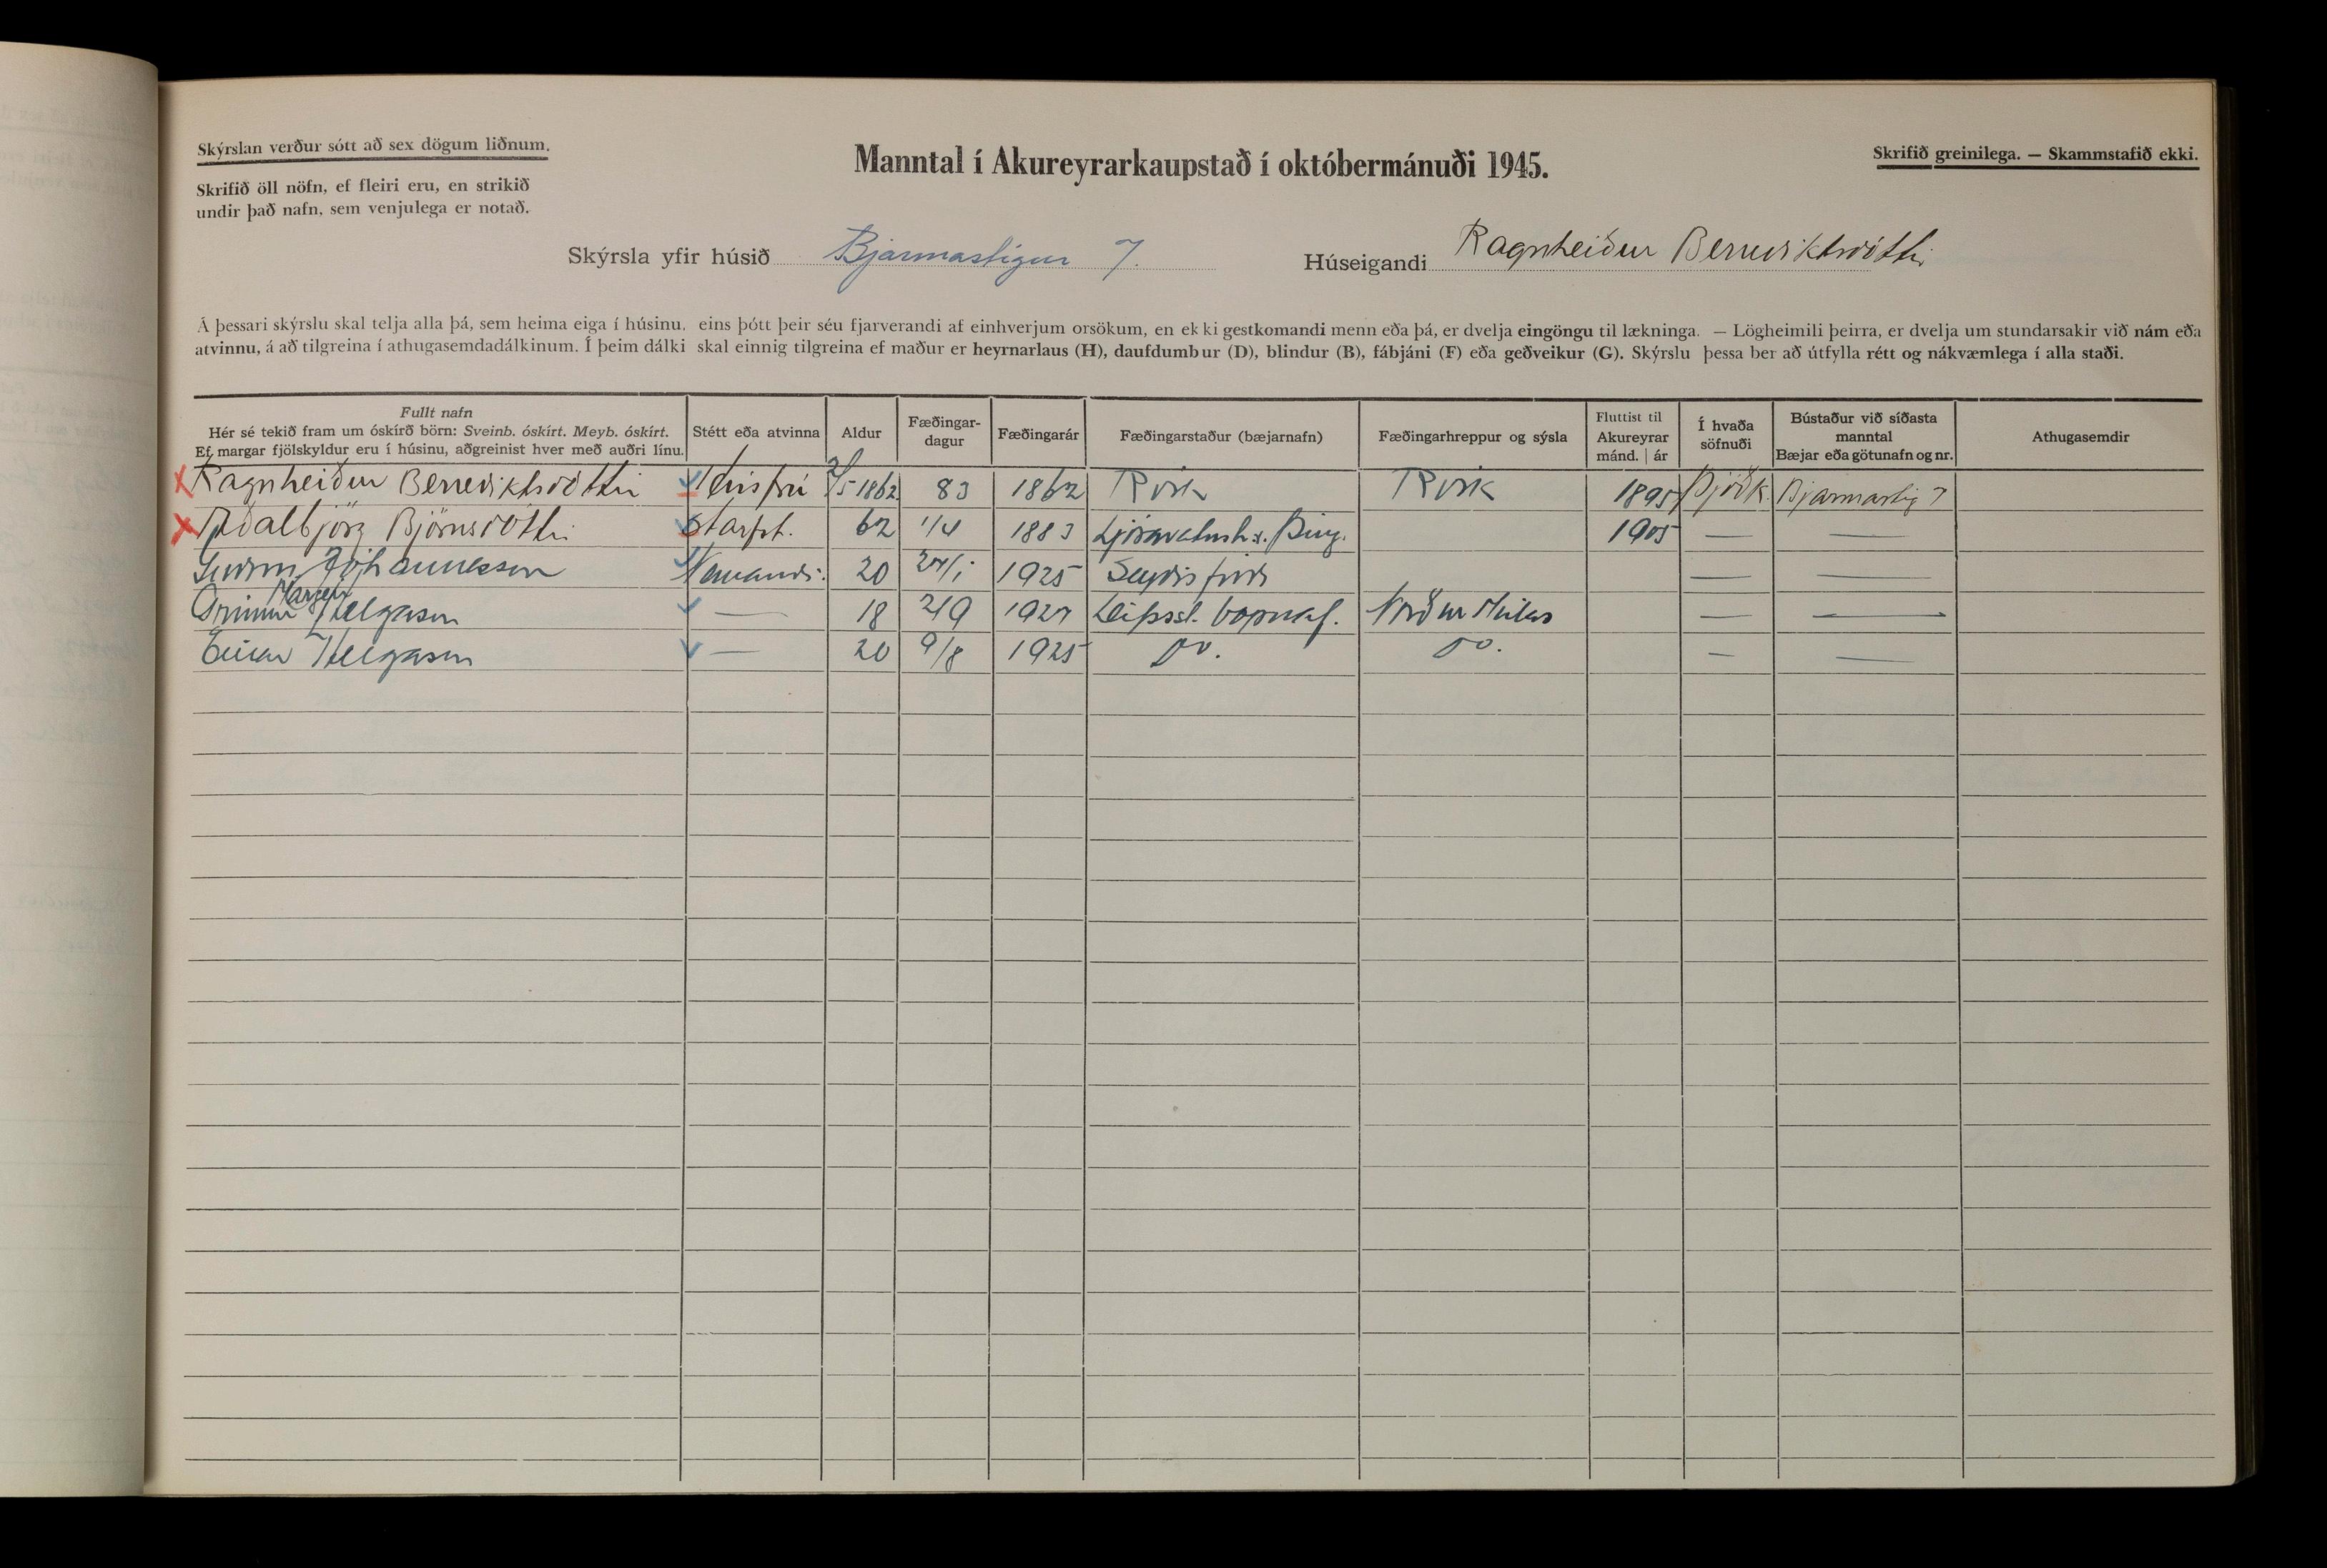 Skýrslan verður sótt að sex dögum liðnum.
Skrifið öll nöfn, ef fleiri eru, en strikið
undir það nafn, sem venjulega er notað.
Manntal í Akureyrarkaupstað í októbermánuði 1945.
Skrifið greinilega. — Skammstafið ekki.
Skýrsla yfir húsið Bjarmastígur 7.
Húseigandi Ragnheiður Benediktsdóttir
Á þessari skýrslu skal telja alla þá, sem heima eiga í húsinu, eins þótt þeir séu fjarverandi af einhverjum orsökum, en ekki gestkomandi menn eða þá, er dvelja eingöngu til lækninga. — Lögheimili þeirra, er dvelja um stundarsakir við nám eða
atvinnu, á að tilgreina í athugasemdadálkinum. Í þeim dálki skal einnig tilgreina ef maður er heyrnarlaus (H), daufdumbur (D), blindur (B), fábjáni (F) eða geðveikur (G). Skýrslu þessa ber að útfylla rétt og nákvæmlega í alla staði.
Fullt nafn
Hér sé tekið fram um óskírð börn: Sveinb. óskírt. Meyb. óskírt.
Ef margar fjölskyldur eru í húsinu, aðgreinist hver með auðri línu.
Stétt eða atvinna
Aldur
Fæðingar-
dagur
Fæðingarár
Fæðingarstaður (bæjarnafn)
Fæðingarhreppur og sýsla
Fluttist til
Akureyrar
mánd. | ár
Í hvaða
söfnuði
Bústaður við síðasta
manntal
Bæjar eða götunafn og nr.
Athugasemdir
Ragnheiður Benediktsdóttir Húsfrú 2/5 1862 83 1862 Rvík Rvík 1895 Þjóðk. Bjarmastíg 7
Aðalbjörg Björnsdóttir Starfst. 62 1/4 1883 Þing. 1905 — —
Jóhannesson Nemandi. 20 1925 Seyðisfirði — —
Margeir
Grímur Helgason — 18 2/9 1927 Vopnaf. Norður Múlas — —
Einar Helgason — 20 9/8 1925 Do. Do. — —